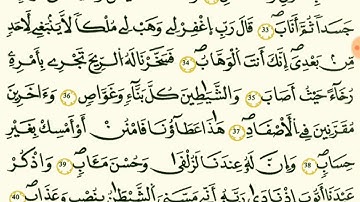 جَسَداً ثُمَّ أَنَابَ 33 قَالَ رَبِّ اِغْفِرْ لِے وَهَبْ لِے مُلْكاً لَّا يَنۢبَغِے لِأَحَدٍ
مِّنۢ بَعْدِيَ إِنَّكَ أَنتَ اَلْوَهَّابُ 34 فَسَخَّرْنَا لَهُ اُلرِّيحَ تَجْرِے بِأَمْرِهِۦ
رُخَآءً حَيْثُ أَصَابَ 35 وَالشَّيَٰطِينَ كُلَّ بَنَّآءٍ وَغَوَّاصٍ 36 وَءَاخَرِينَ
مُقَرَّنِينَ فِے اِلْأَصْفَادِ 37 هَٰذَا عَطَآؤُنَا فَامْنُنْ أَوْ أَمْسِكْ بِغَيْرِ
حِسَابٍ 38 وَإِنَّ لَهُۥ عِندَنَا لَزُلْفَىٰ وَحُسْنَ مَـَٔابٍ 39 وَاذْكُرْ
عَبْدَنَآ أَيُّوبَ إِذْ نَادَىٰ رَبَّهُۥٓ أَنِّے مَسَّنِيَ اَلشَّيْطَٰنُ بِنُصْبٍ وَعَذَابٍ 40